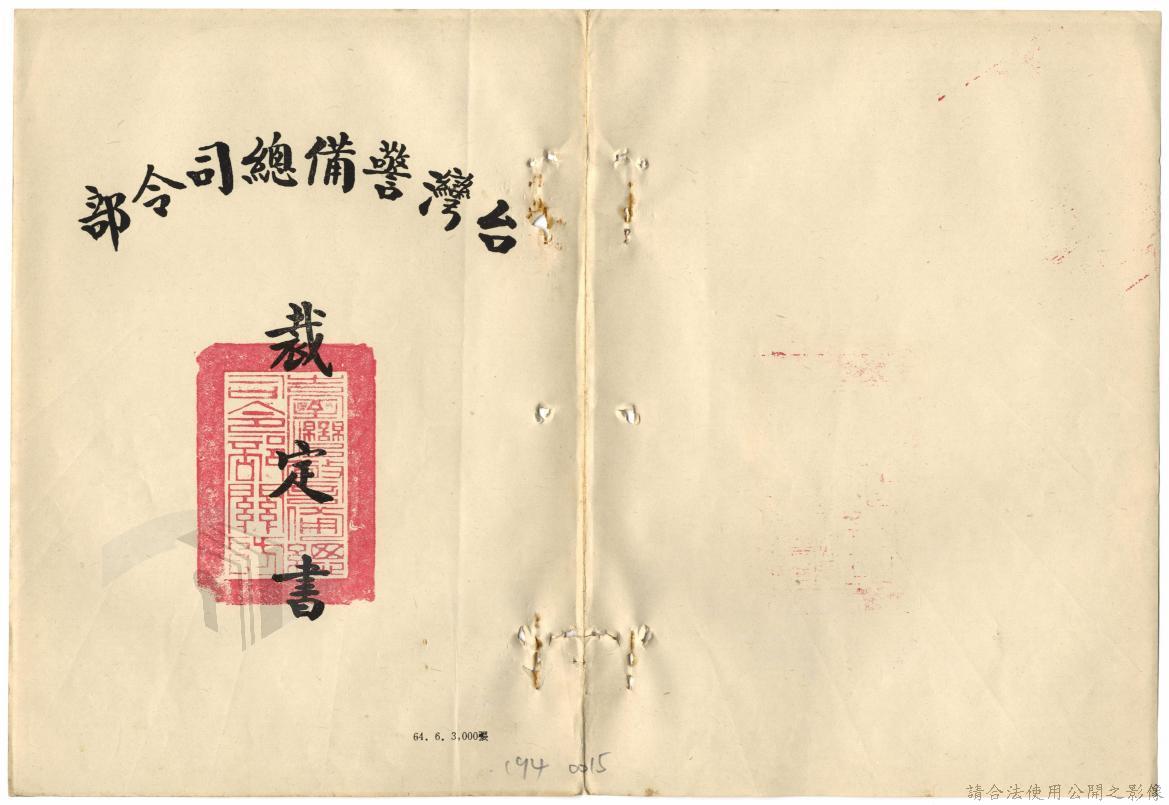 台灣警備總司令部
裁定書
臺灣警備總
司令部關防
64. 6. 3,000張
194 0015
請合法使用公開之影像